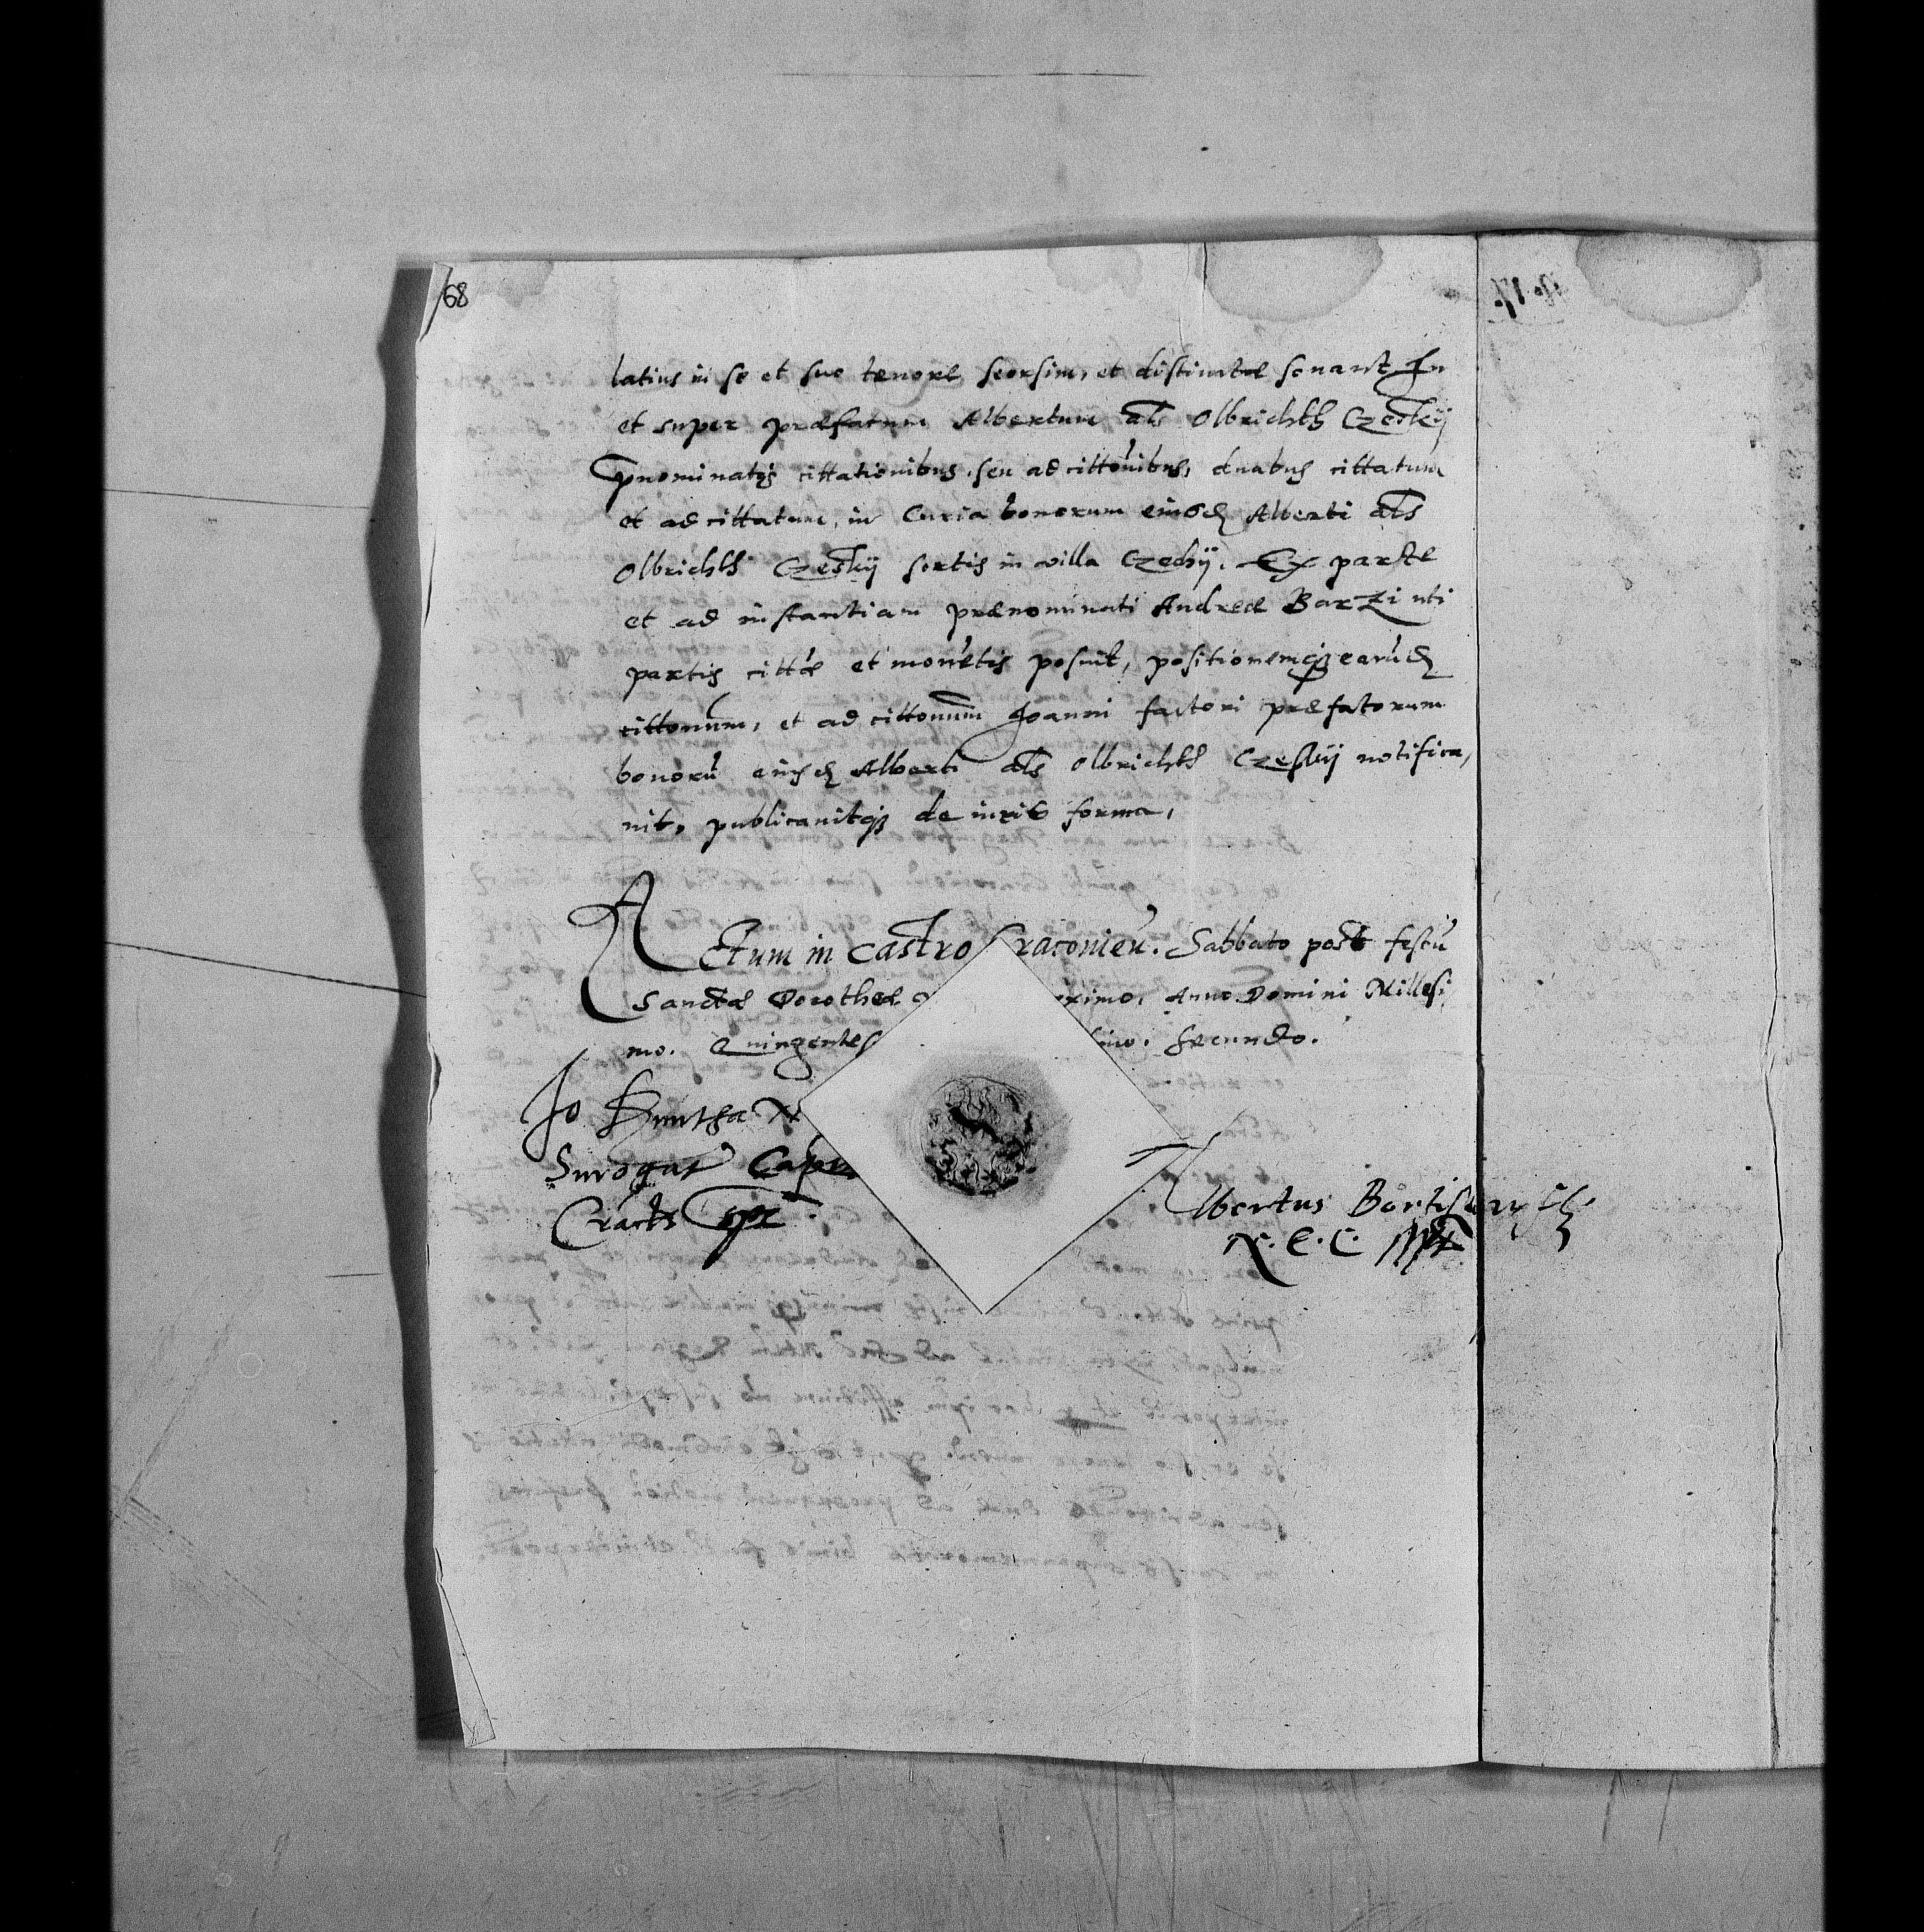 68
latius in se et suo tenore seorsim, et distincte sonant In
et super præfatum Albertum als Olbrichth Czeskij
pnominatqs cittationibus seu adcittonibus, duabus cittatum
et adcittatum, in Curia bonorum eiusd Alberti als
Olbrichth Czeskij sortis in villa Czechij. Ex parte
et ad instantiam prænominati Andreæ Barzi uti
partis cittæ et monetis posuit, positionemqz earud
cittonum, et adcittonum Joanni factori præfatorum
bonorū eiusd Alberti als Olbrichth Czeskij notifica,
uit, publicauitqz de iuris forma,
Actum in castro Cracouien. Sabbato post festū
Sanctæ Dorotheæ ximo, Anno Domini Millesi
mo. Quingentes simo. secundo.
Jo
Surogat Cap
Cracs spt
Albertus
N. C. C. mpp